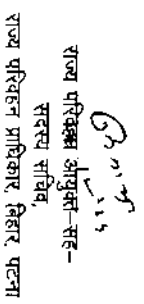 राज्य परिवहन आयुक्त–सह–
सदस्य सचिव,
राज्य परिवहन प्राधिकार, बिहार, पटना